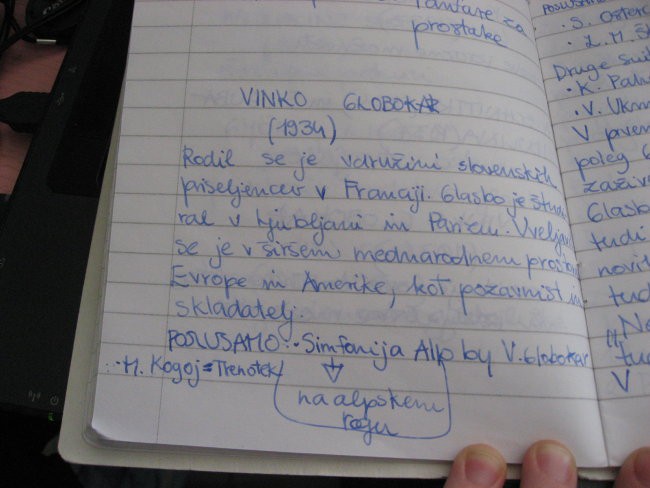 Fanfare za
prostake
VINKO GLOBOKAR
(1934)
Rodil se je v družini slovenskih
priseljencev v Franciji. Glasbo je študi
ral v Ljubljani in Parizu. Uveljavi
se je v širšem mednarodnem prostoru
Evrope in Amerike, kot pozavnist in
skladatelj.
POSLUŠAMO: • Simfonija Alp by V. Globokar
• M. Kogoj = Trenotek
na alpskem
rogu
POSLUŠAMO
• S. Osterc
• L. M. Š
Druge sui
• K. Pah
• V. Ukm
V prvem
poleg G
zaživ
Glasb
tudi
novit
tud
"Ne
tud
V